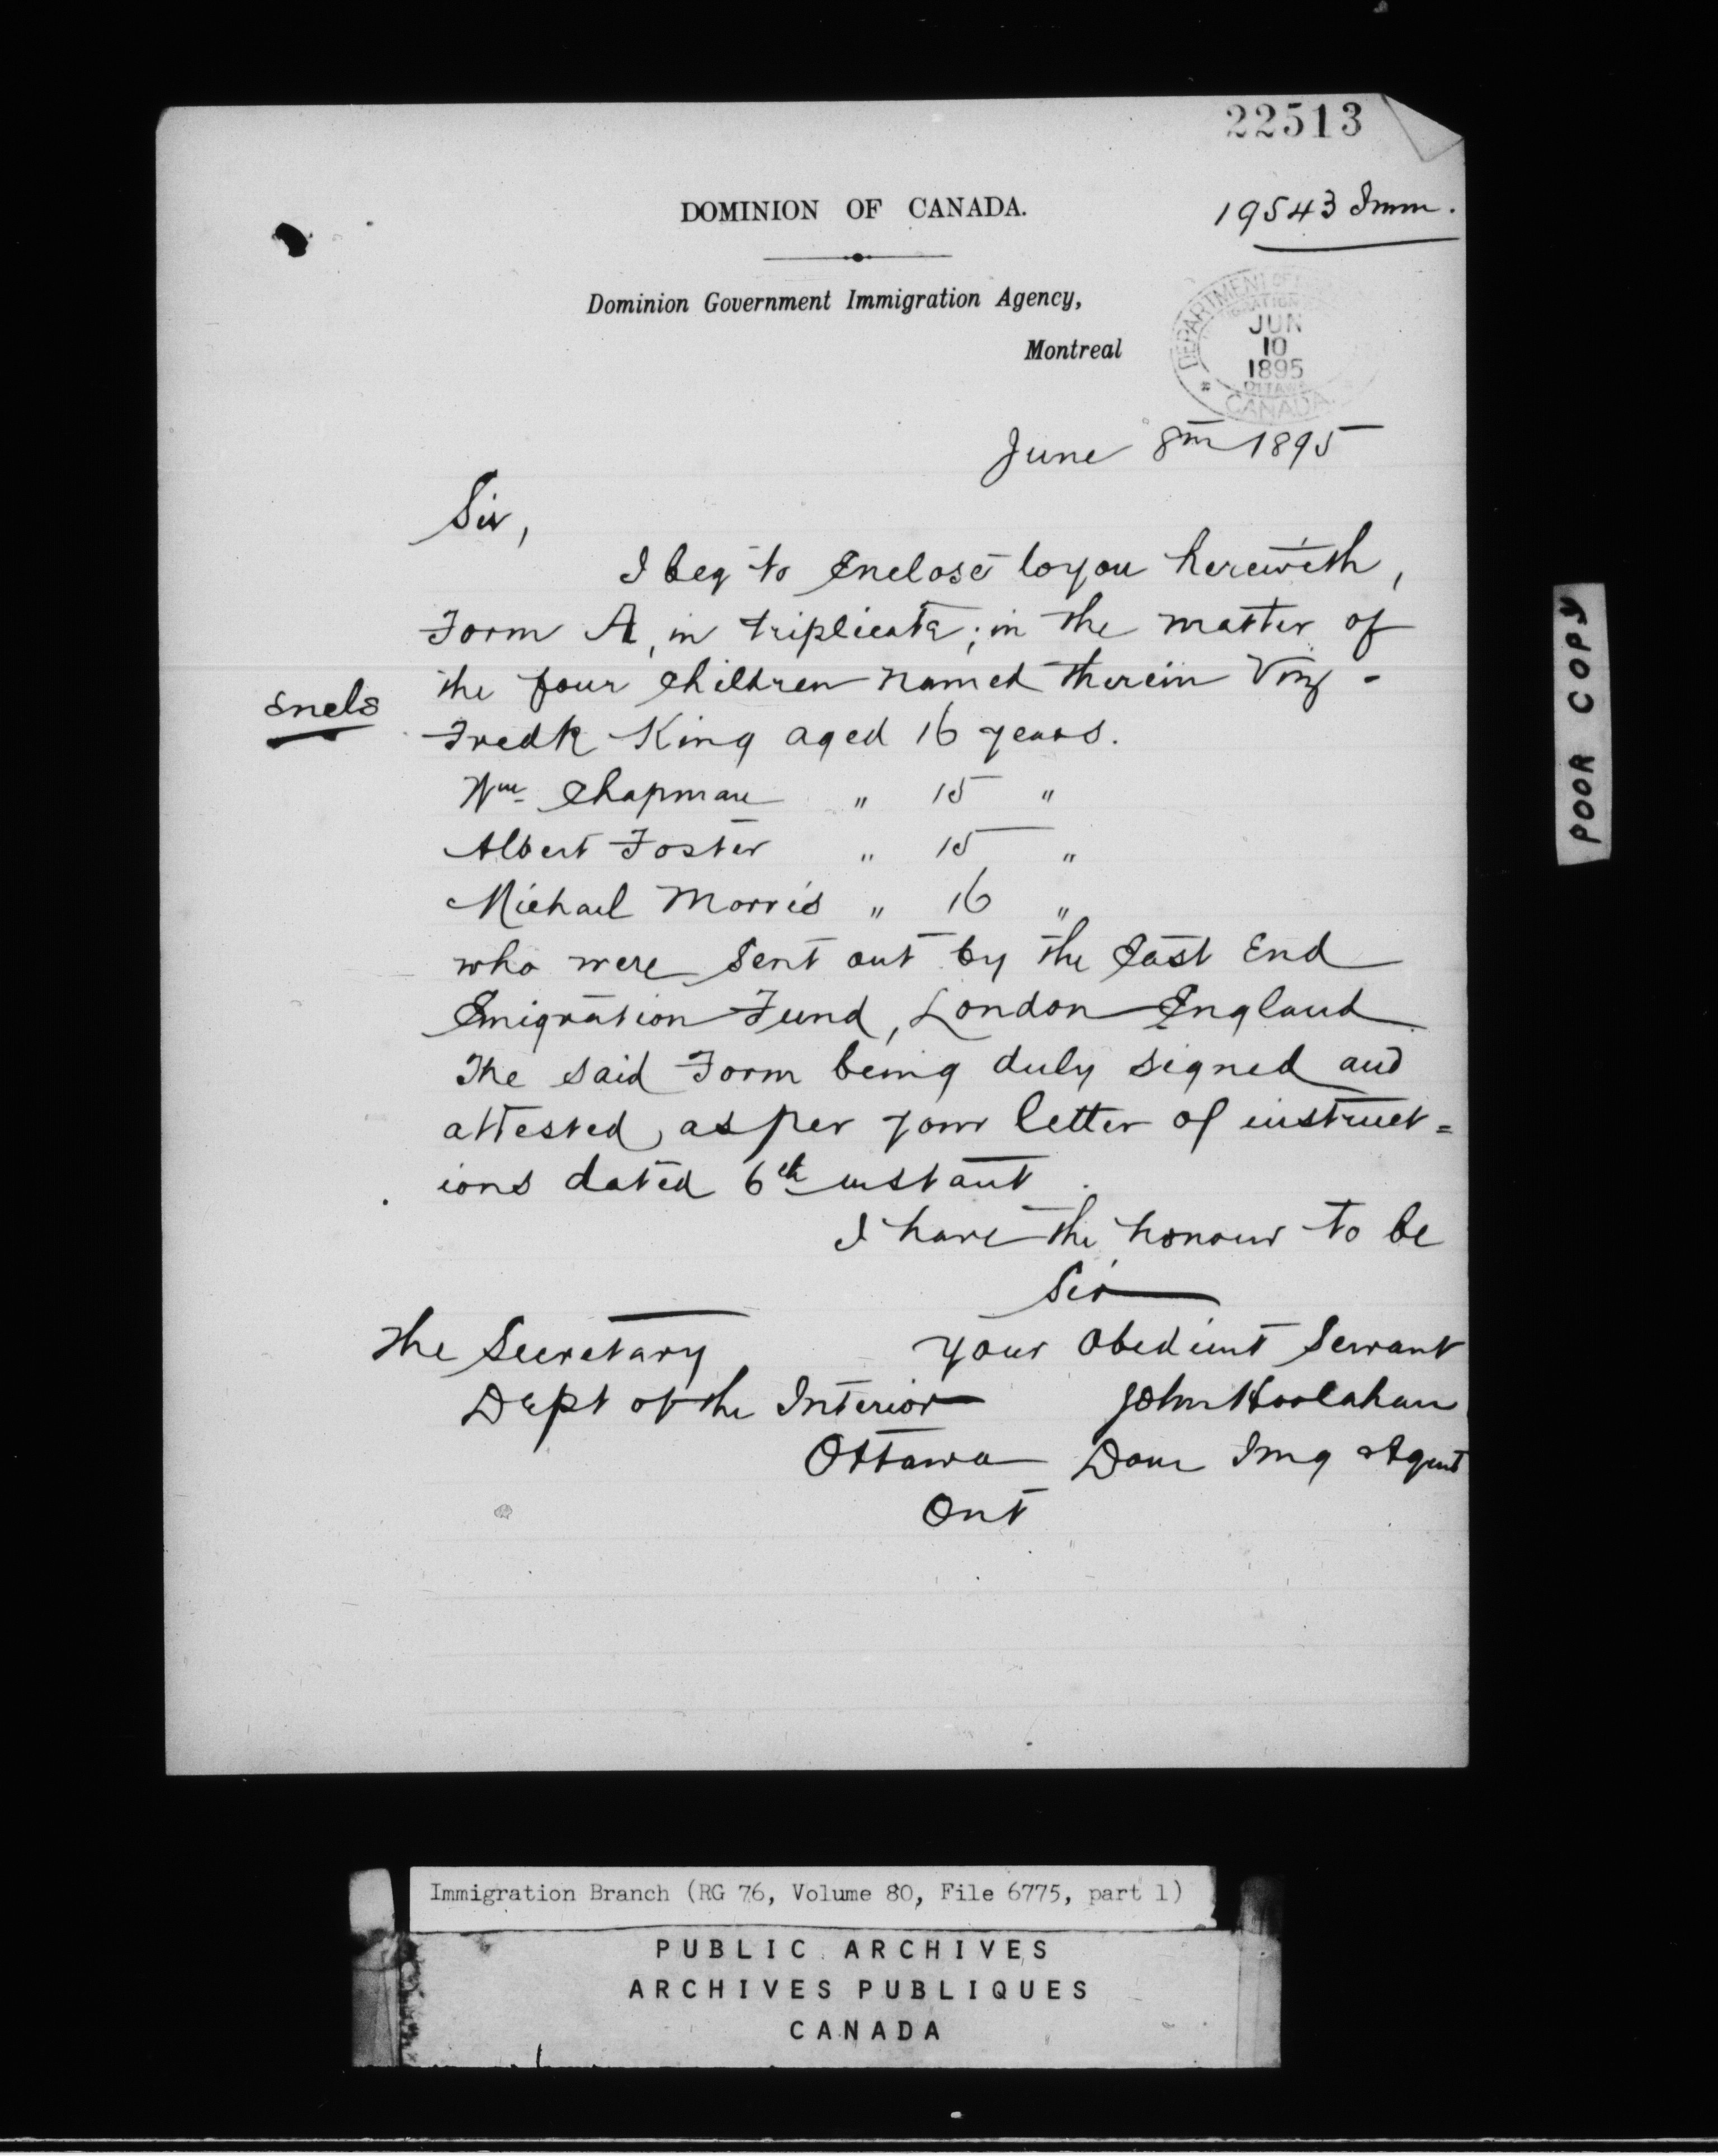 22513
DOMINION OF CANADA.
19543 Imm.
Dominion Government Immigration Agency,
Montreal
DEPARTMENT OF
JUN
10
1895
OTTAWA
CANADA
June 8th 1895
Sir,
I beg to Enclose to you herewith,
Form A, in triplicate; in the matter of
the four children named therein Viz -
Encls
Fredk King aged 16 years.
Wm Chapman " 15 "
Albert Foster " 15 "
Michael Morris " 16 "
who were sent out by the East End
Emigration Fund, London England
The said Form being duly signed and
attested, as per your letter of instruct=
ions dated 6th instant.
I have the honour to be
Sir
Your Obedient Servant
The Secretary
John Hoolahan
Dept of the Interior
Dom Img Agent
Ottawa
Ont
POOR COPY
Immigration Branch (RG 76, Volume 80, File 6775, part 1)
PUBLIC ARCHIVES
ARCHIVES PUBLIQUES
CANADA